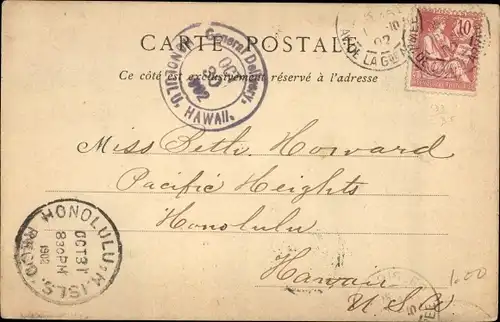 CARTE POSTALE
Ce côté est exclusivement réservé à l'adresse
General Delivery,
OCT
1902
HONOLULU, HAWAII.
10
02
AV. DE LA Gde ARMEE
10
Miss Beth Howard
Pacific Heights
Honolulu
Hawaii
U.S.A
HONOLULU, H. ISLS.
OCT 31
8 30 PM
1902
REC'D.
1.00